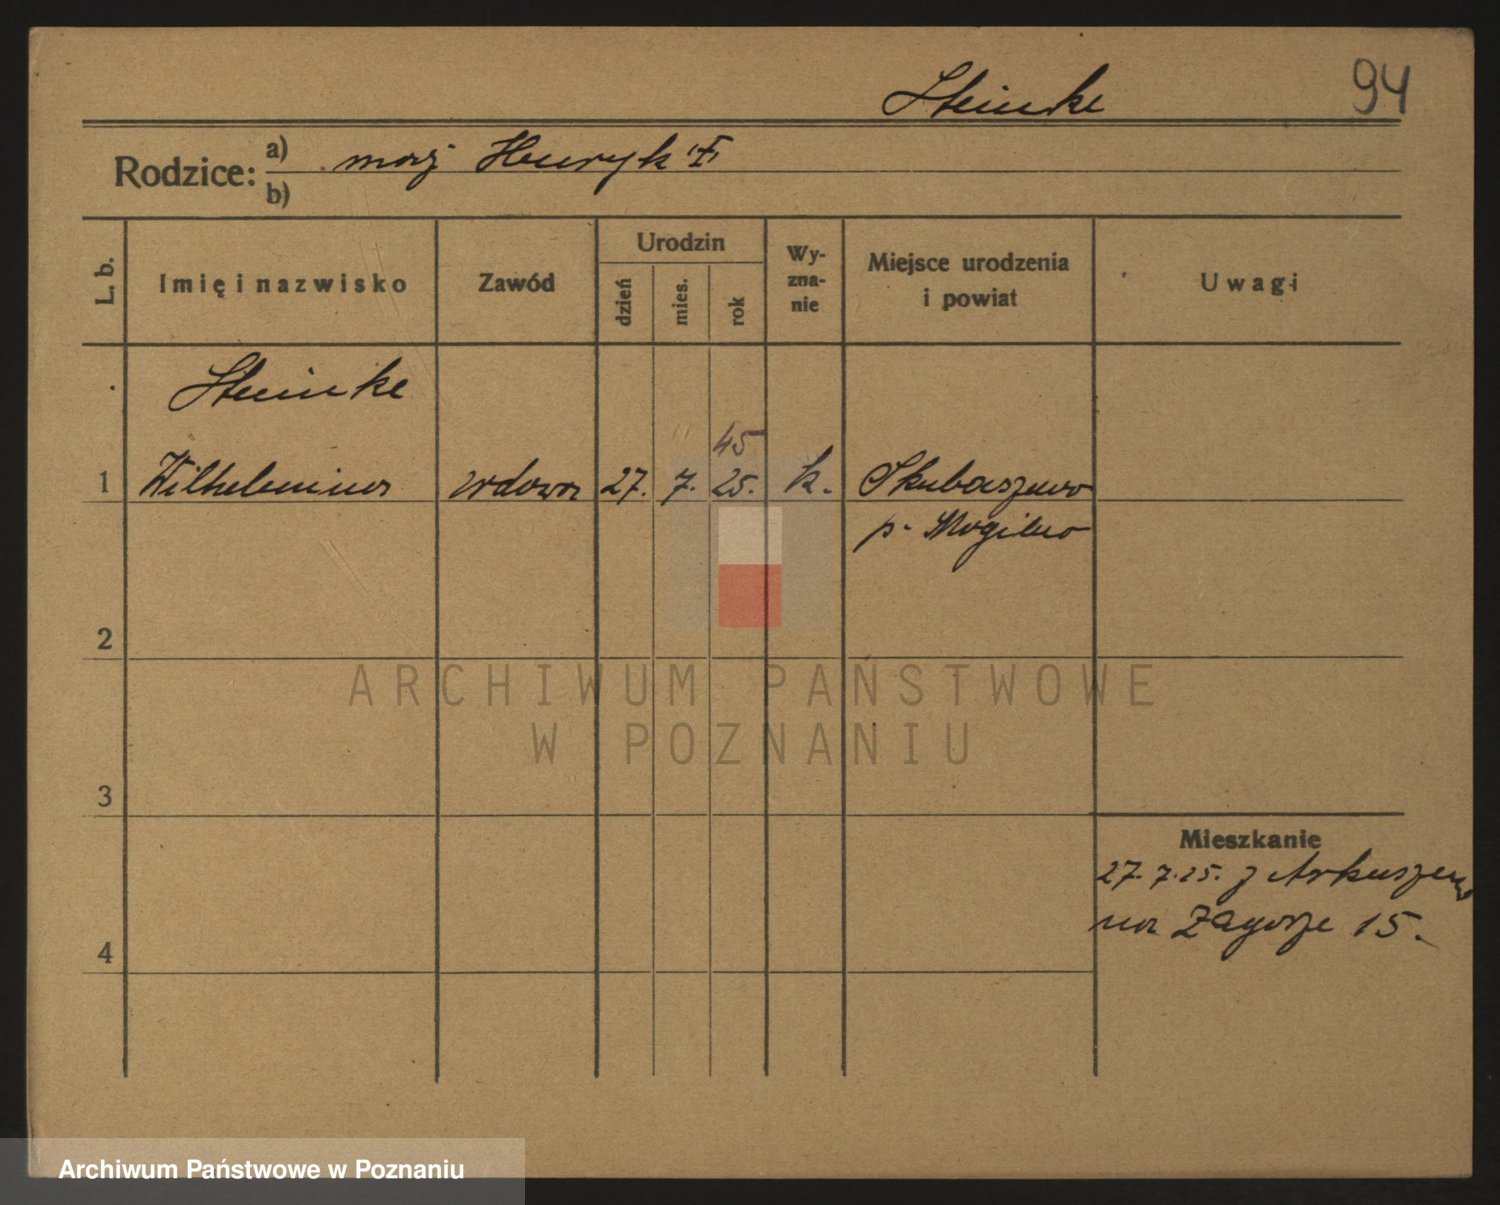 Steinke
94
Rodzice: a) mąż Henryk "I"
b)
L. b.
Imię i nazwisko
Zawód
Urodzin
dzień
mies.
rok
Wy-
zna-
nie
Miejsce urodzenia
i powiat
Uwagi
Steinke
45
1 Wilhelmina wdowa 27. 7. 25. k. Skubaszewo
p. Mogilno
2
ARCHIWUM PAŃSTWOWE
W POZNANIU
3
Mieszkanie
27.7.25. z Arkuszewa
na Zagorze 15.
4
Archiwum Państwowe w Poznaniu